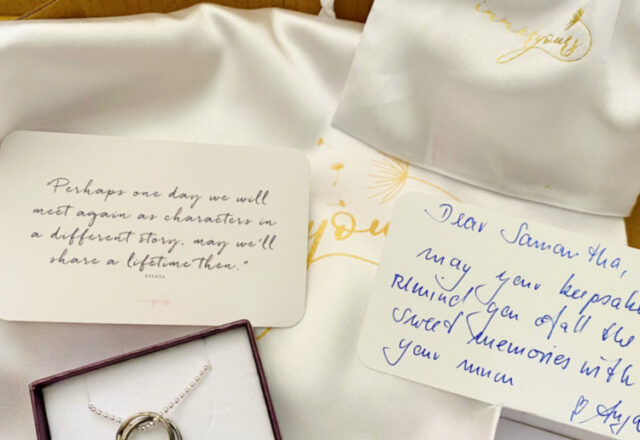 innayours
"Perhaps one day we will
meet again as characters in
a different story, may we'll
share a lifetime then."
Dear Samantha,
may your keepsake
remind you of all the
sweet memories with
your mum